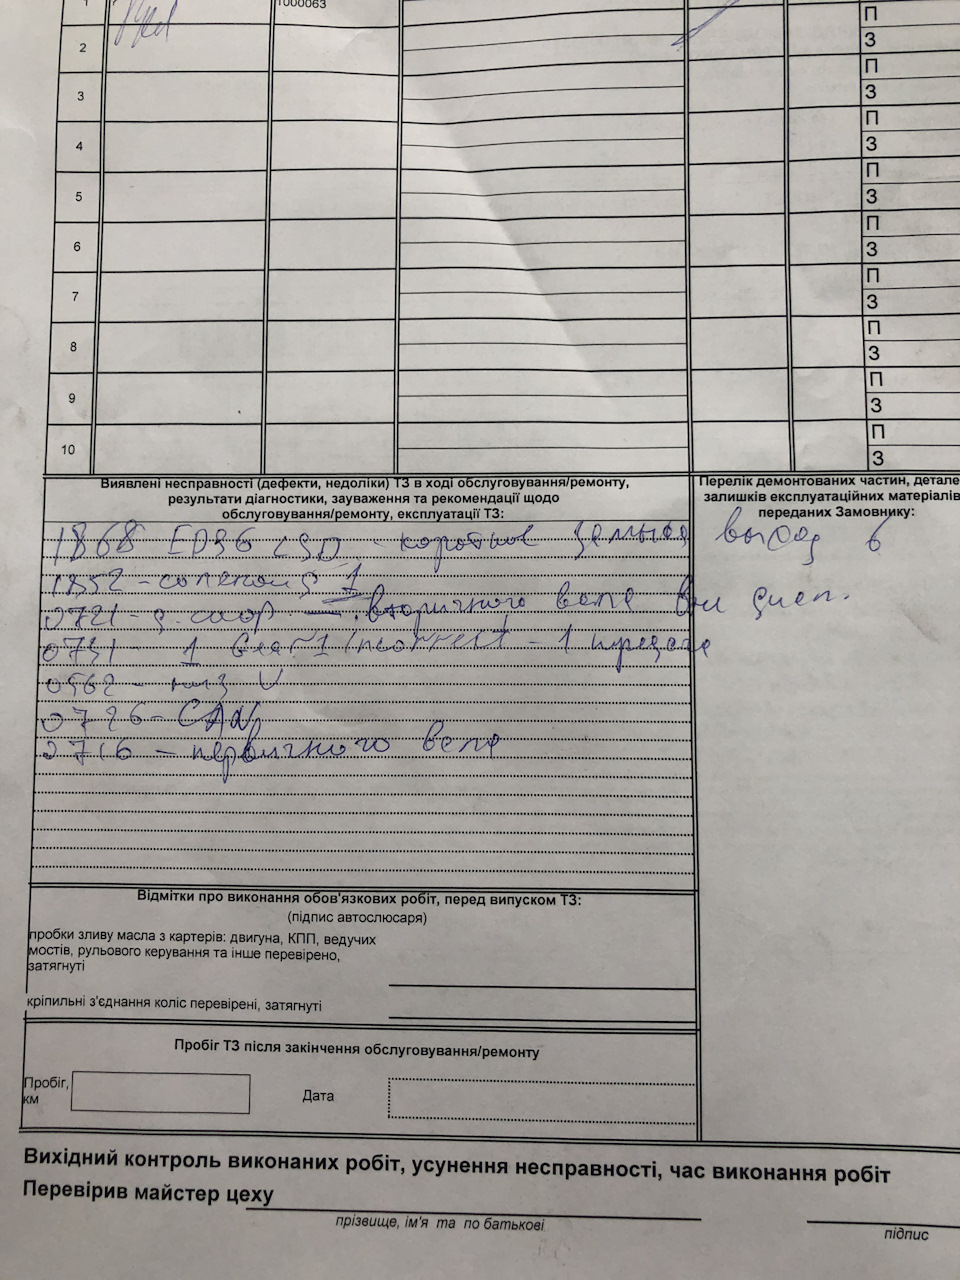 1 1000063 П
2 З
П
3 З
П
4 З
П
5 З
П
6 З
П
7 З
П
8 З
П
9 З
П
10 З
Виявлені несправності (дефекти, недоліки) ТЗ в ході обслуговування/ремонту,
результати діагностики, зауваження та рекомендації щодо
обслуговування/ремонту, експлуатації ТЗ:
Перелік демонтованих частин, детале
залишків експлуатаційних матеріалів
переданих Замовнику:
1868 - короткое замыка выход 6
1852 - соленоид 1
0721 - вторичного вала
0731 - 1 incorrect - 1
0562 - низ U
0726 - CAN
0716 - первичного вала
Відмітки про виконання обов'язкових робіт, перед випуском ТЗ:
(підпис автослюсаря)
пробки зливу масла з картерів: двигуна, КПП, ведучих
мостів, рульового керування та інше перевірено,
затягнуті
кріпильні з'єднання коліс перевірені, затягнуті
Пробіг ТЗ після закінчення обслуговування/ремонту
Пробіг,
км
Дата
Вихідний контроль виконаних робіт, усунення несправності, час виконання робіт
Перевірив майстер цеху
прізвище, ім'я та по батькові
підпис